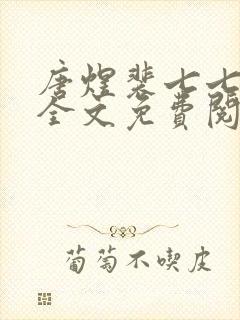 唐煜裴七七
全文免费阅
葡萄不喫皮